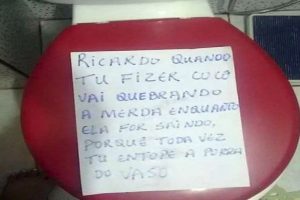 RICARDO QUANDO
TU FIZER COCO
VAI QUEBRANDO
A MERDA ENQUANTO
ELA FOR SAINDO,
PORQUE TODA VEZ
TU ENTOPE A PORRA
DO VASO